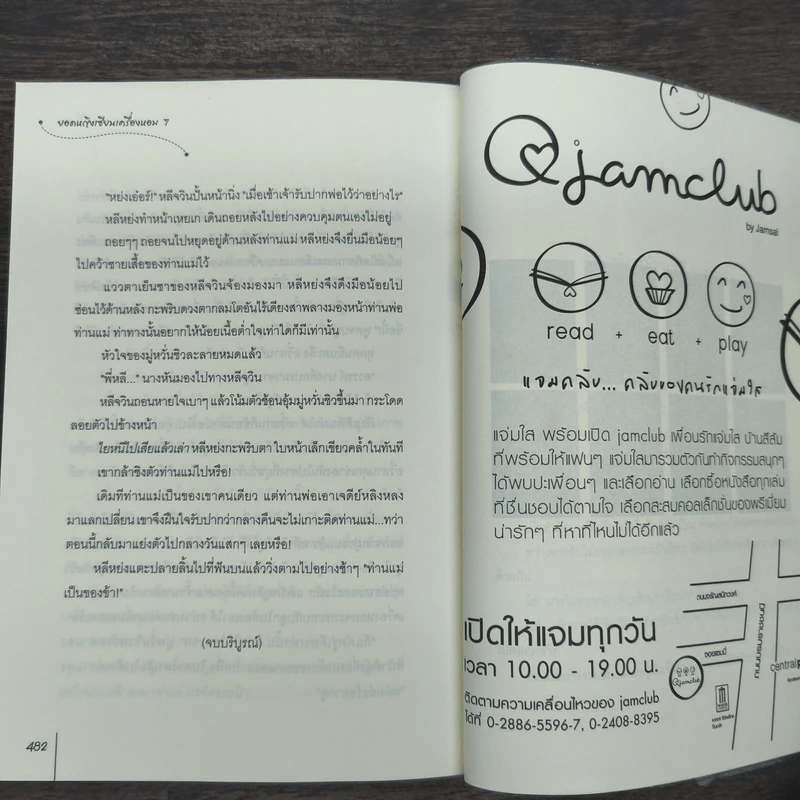 ยอดหญิงเซียนเครื่องหอม 7
"หย่งเอ๋อร์!" หลีจวินปั้นหน้านิ่ง "เมื่อเช้าเจ้ารับปากพ่อไว้ว่าอย่างไร"
หลีหย่งทำหน้าเหยเก เดินถอยหลังไปอย่างควบคุมตนเองไม่อยู่
ถอยๆๆ ถอยจนไปหยุดอยู่ด้านหลังท่านแม่ หลีหย่งจึงยื่นมือน้อยๆ
ไปคว้าชายเสื้อของท่านแม่ไว้
แววตาเย็นชาของหลีจวินจ้องมองมา หลีหย่งจึงดึงมือน้อยไป
ซ่อนไว้ด้านหลัง กะพริบดวงตากลมโตอันไร้เดียงสาพลางมองหน้าท่านพ่อ
ท่านแม่ ท่าทางนั้นอยากให้น้อยเนื้อต่ำใจเท่าใดก็มีเท่านั้น
หัวใจของมู่หวั่นชิวละลายหมดแล้ว
"พี่หลี..." นางหันมองไปทางหลีจวิน
หลีจวินถอนหายใจเบาๆ แล้วโน้มตัวช้อนอุ้มมู่หวั่นชิวขึ้นมา กระโดด
ลอยตัวไปข้างหน้า
ไยหนีไปเสียแล้วเล่า หลีหย่งกะพริบตา ใบหน้าเล็กเขียวคล้ำในทันที
เขากล้าชิงตัวท่านแม่ไปหรือ!
เดิมทีท่านแม่เป็นของเขาคนเดียว แต่ท่านพ่อเอาเจดีย์หลิงหลง
มาแลกเปลี่ยน เขาจึงฝืนใจรับปากว่ากลางคืนจะไม่เกาะติดท่านแม่...ทว่า
ตอนนี้กลับมาแย่งตัวไปกลางวันแสกๆ เลยหรือ!
หลีหย่งแตะปลายลิ้นไปที่ฟันบนแล้ววิ่งตามไปอย่างช้าๆ "ท่านแม่
เป็นของข้า!"
(จบบริบูรณ์)
482
@jamclub
by Jamsai
read + eat + play
แจมคลับ... คลับของคนรักแจ่มใส
แจ่มใส พร้อมเปิด jamclub เพื่อนรักแจ่มใส บ้านสีส้ม
ที่พร้อมให้แฟนๆ แจ่มใสมารวมตัวกันทำกิจกรรมสนุกๆ
ได้พบปะเพื่อนๆ และเลือกอ่าน เลือกซื้อหนังสือทุกเล่ม
ที่ชื่นชอบได้ตามใจ เลือกสะสมคอลเล็กชั่นของพรีเมี่ยม
น่ารักๆ ที่หาที่ไหนไม่ได้อีกแล้ว
เปิดให้แจมทุกวัน
เวลา 10.00 - 19.00 น.
ติดตามความเคลื่อนไหวของ jamclub
ได้ที่ 0-2886-5596-7, 0-2408-8395
ถนนจรัญสนิทวงศ์
@jamclub